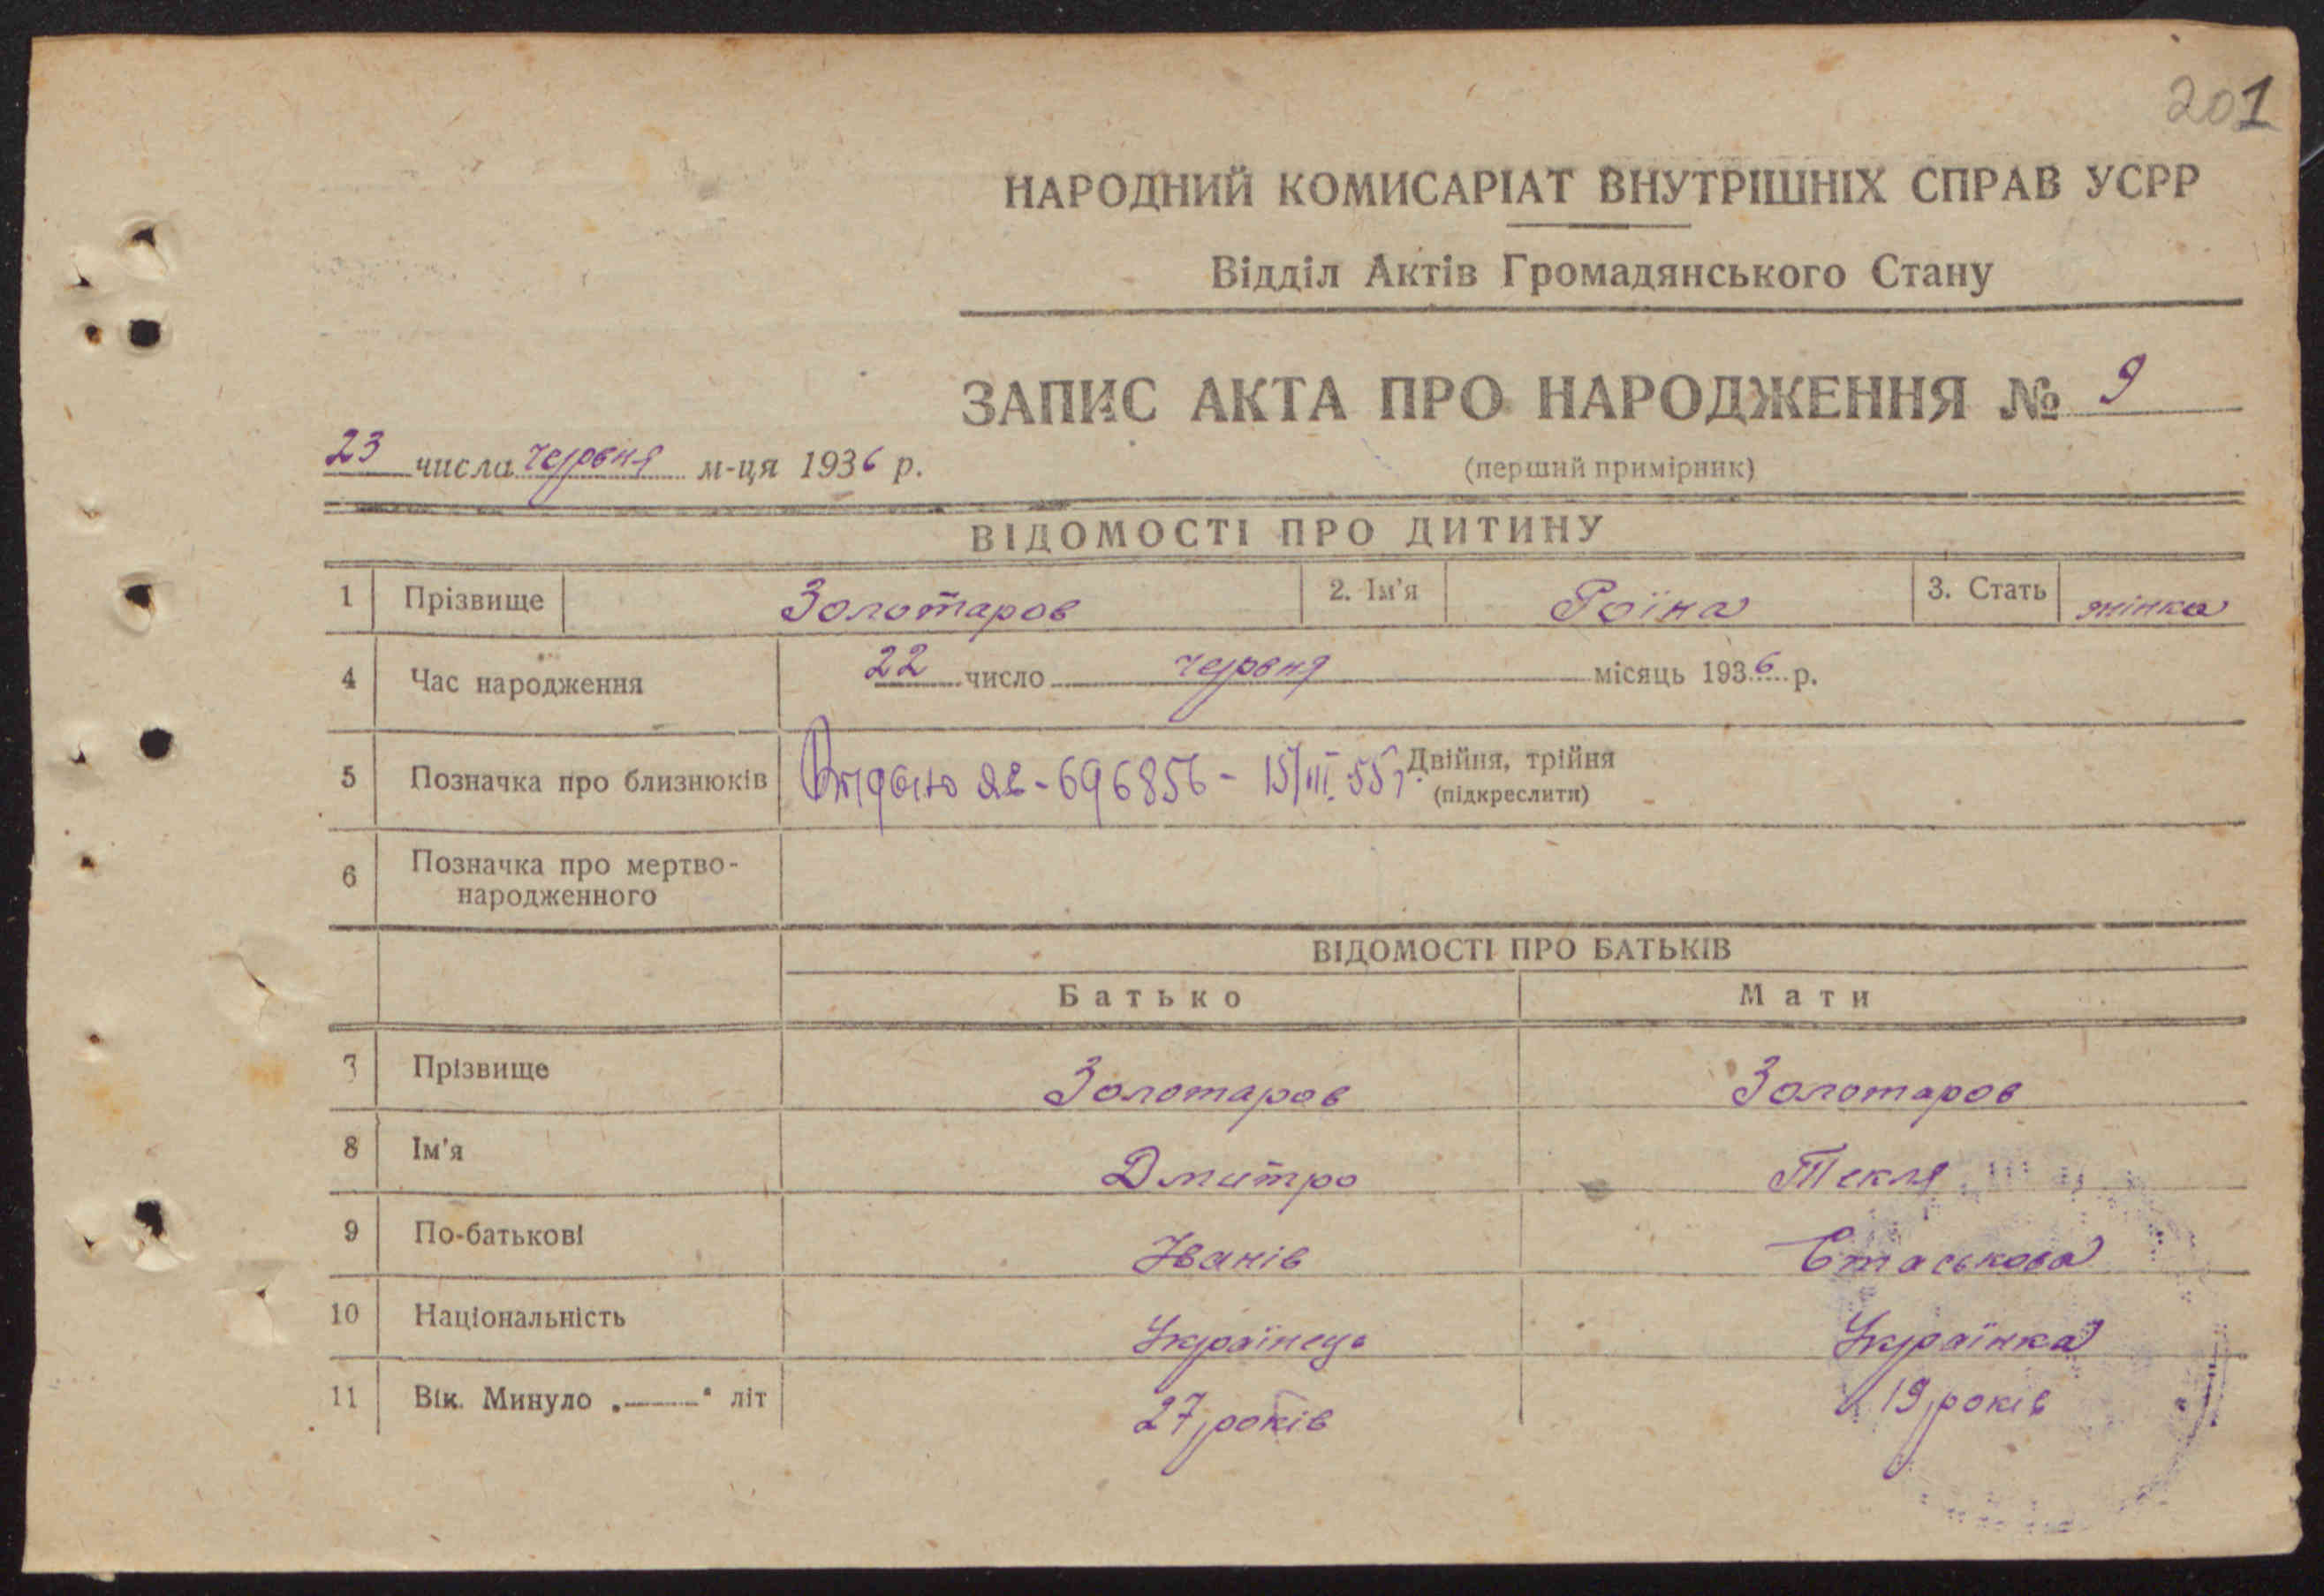 201
НАРОДНИЙ КОМИСАРІАТ ВНУТРІШНІХ СПРАВ УСРР
Відділ Актів Громадянського Стану
ЗАПИС АКТА ПРО НАРОДЖЕННЯ № 9
23 числа червня м-ця 1936 р.
(перший примірник)
ВІДОМОСТІ ПРО ДИТИНУ
1 Прізвище Золотаров 2. Ім'я Роїна 3. Стать жінка
4 Час народження 22 число червня місяць 1936 р.
5 Позначка про близнюків Видано ЯЕ-696856 - 15/III.55 р. Двійня, трійня
(підкреслити)
6 Позначка про мертво-
народженного
ВІДОМОСТІ ПРО БАТЬКІВ
Батько Мати
7 Прізвище Золотаров Золотаров
8 Ім'я Дмитро Текля
9 По-батькові Іванів Стаськова
10 Національність Українець Українка
11 Вік. Минуло „——" літ 27 років 19 років